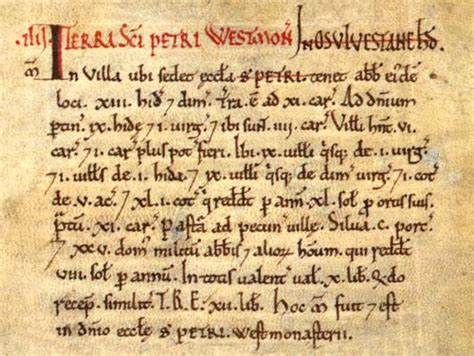 .iiij. TERRA SCI PETRI WESTMON̄ IN OSULVESTANE hD
ꝳ In Villa ubi sedet eccła S PETRI. tenet abb ei'dē
loci. xiii. hid' 7 dim'. Tra. ē ad xi. car'. Ad dn̄ium
ptin'. ix. hide 7 i. uirg' 7 ibi sun'. iiii. car'. Vilłi hn̄t. vi.
car'. 7 i. car' plus pot' fieri. Ibi. ix. uilłi q'sq; de. i. uirg'.
7 i. uilłs de. i. hida. 7 ix. uilłi q'sq; de dim' uirg'. 7 i. cot'
de. v. ac'. 7 xl. i. cot' q' redd't p ann̄. xl. soł p ortis suis.
P'tū. xi. car'. Pasťa ad pecun' uillę. Silua. c. porc'.
7 xxv. dom' militū abb'is 7 alior' houm̄. qui redd't
viii. soł p annū. In totis ualent' uał. x. lib'. Q'do
recep'. similit'. T.R.E. xii. lib'. Hoc ꝳ fuit 7 est
in dn̄io eccłę S PETRI. Westmonasterii.